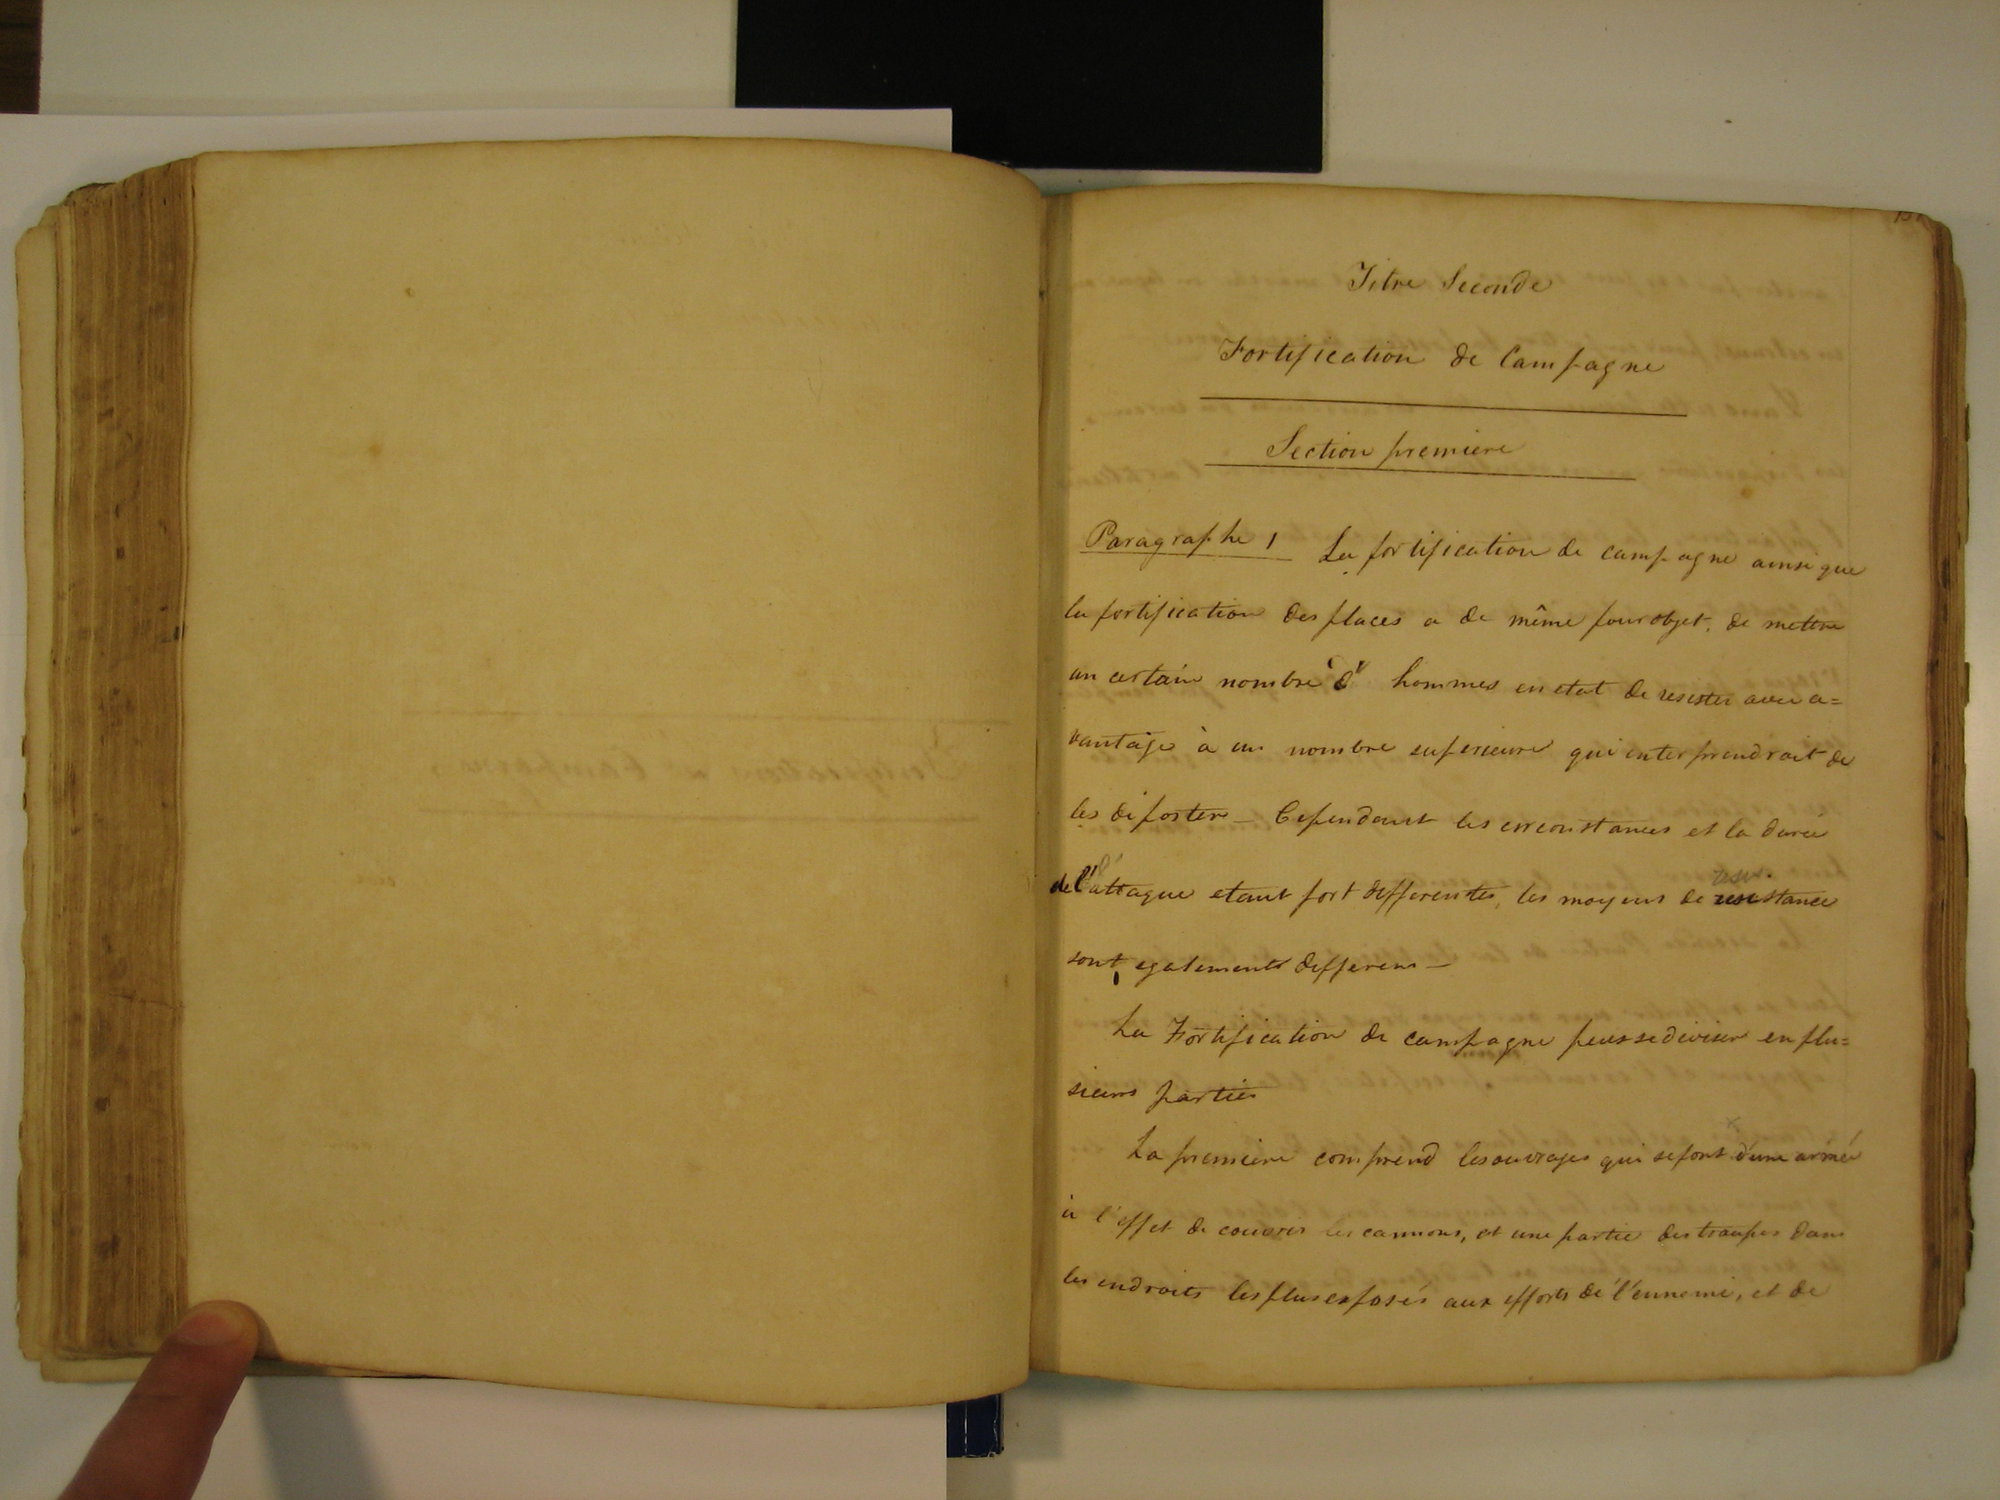 Titre Seconde
Fortification de Campagne
Section premiere
Paragraphe 1 La fortification de campagne ainsi que
la fortification des places a de même pour objet, de mettre
un certain nombre d' hommes en etat de resister avec a=
vantage à un nombre superieure qui enterprendrait de
les déposter – Cependant les circonstances et la durée
de l'attaque etant fort differentes, les moyens de resistance
sont egalements differens –
La Fortification de campagne peut se diviser en plu=
sieurs parties
La premiere comprend les ouvrages qui se font d'une armée
à l'effet de couvrir les cannons, et une partie des troupes dans
les endroits les plus exposés aux efforts de l'ennemi, et de